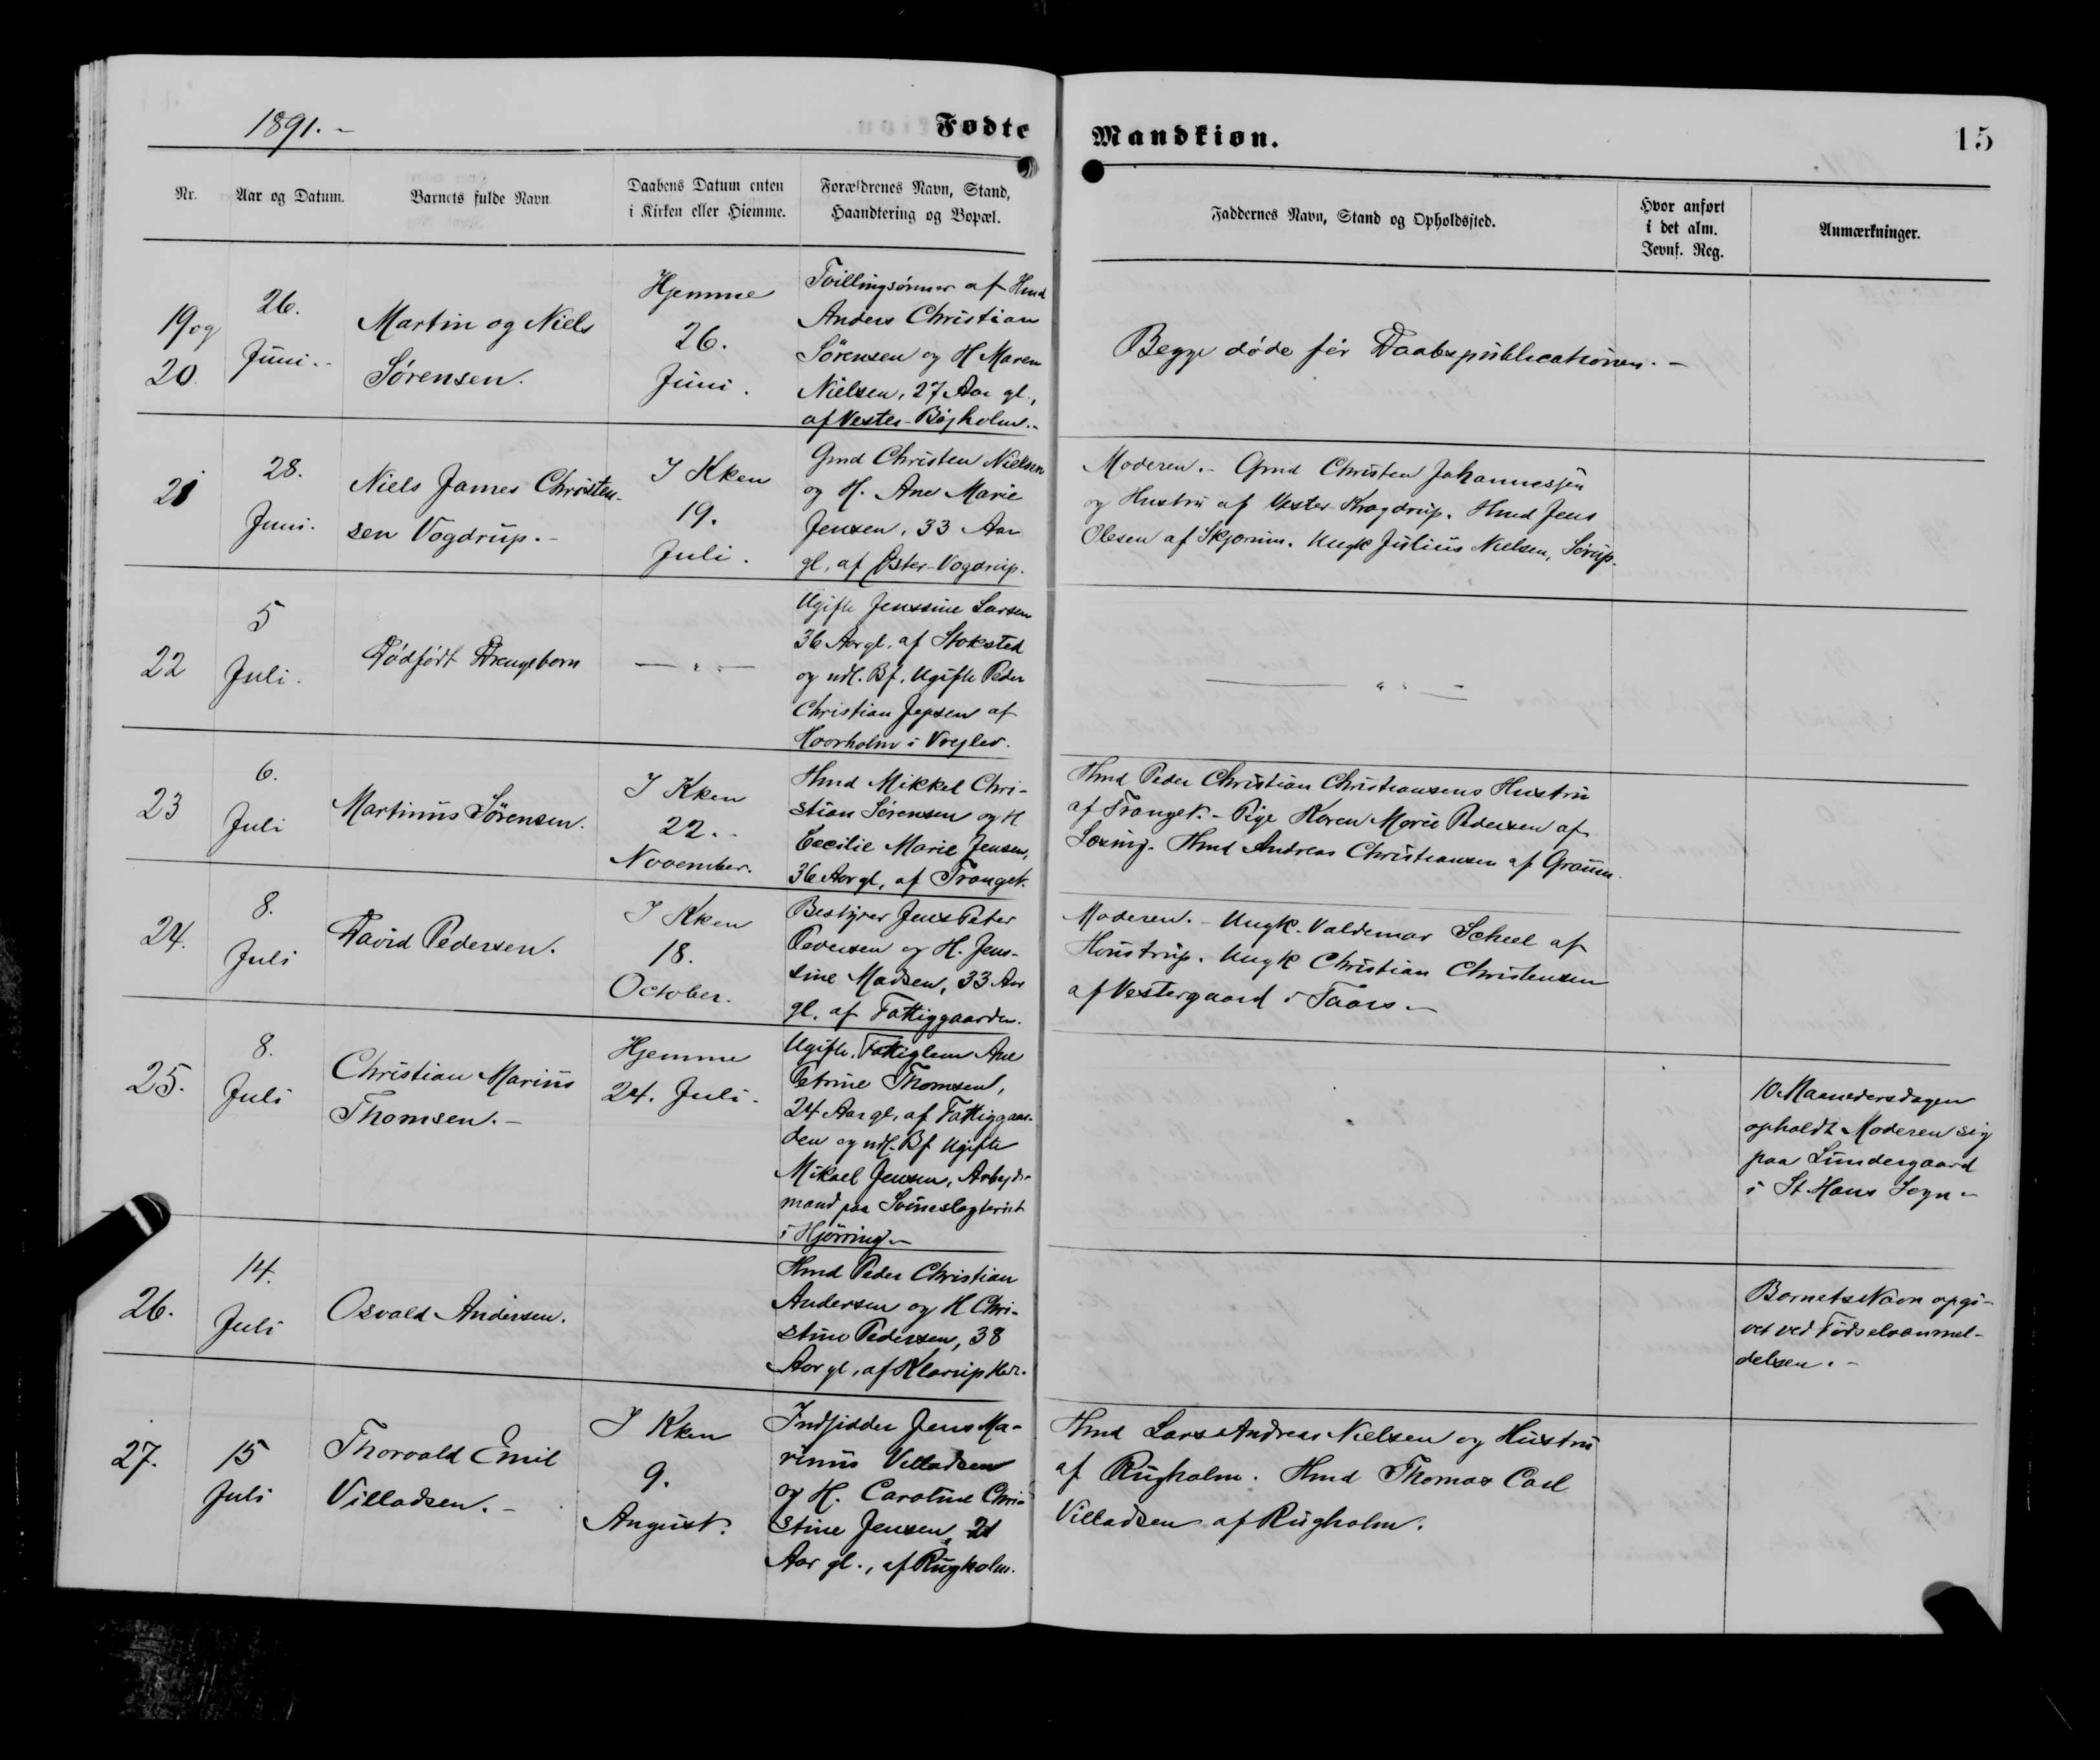 1891.-
Fødte
Mandkiøn.
15
Nr.
Aar og Datum.
Barnets fulde Navn
Daabens Datum enten
i Kirken eller Hiemme.
Forældrenes Navn, Stand,
Haandtering og Bopæl.
Faddernes Navn, Stand og Opholdssted.
Hvor anført
i det alm.
Jevnf. Reg.
Anmærkninger.
19 og
20.
26.
Juni.-
Martin og Niels
Sørensen.
Hjemme
26.
Juni.
Tvillingsønner af Hmd
Anders Christian
Sørensen og H Maren
Nielsen, 27 Aar gl.,
af Vester-Bøjholm.-
Begge døde før Daabspublicationen.-
21
28.
Juni.
Niels James Christen-
sen Vogdrup.-
I Kken
19.
Juli.
Gmd Christen Nielsen
og H. Ane Marie
Jensen, 33 Aar
gl, af Øster-Vogdrup.
Moderen.- Gmd Christen Johannessen
og Hustru af Vester-Kragdrup. Hmd Jens
Olesen af Skjørum. Ungk Julius Nielsen, Sørup.
22
5
Juli.
Dødfødt Drengebarn
— " —
Ugifte Jenssine Larsen
36 Aar gl. af Stoksted
og udl. Bf. Ugifte Peder
Christian Jepsen af
Hvorholm i Vrejlev.
— " —
23
6.
Juli
Martinus Sørensen.
I Kken
22.-
November.
Hmd Mikkel Chri-
stian Sørensen og H
Cecilie Marie Jensen,
36 Aar gl, af Tranget.
Hmd Peder Christian Christiansens Hustru
af Tranget.- Pige Karen Marie Pedersen af
Sæsing. Hmd Andreas Christiansen af Graum.
24.
8.
Juli
David Pedersen.
I Kken
18.
October.
Bestyrer Jens Peter
Pedersen og H. Jens-
sine Madsen, 33 Aar
gl. af Fattiggaarden.
Moderen.- Ungk. Valdemar Scheel af
Houstrup. Ungk Christian Christensen
af Vestergaard i Taars.-
25.
8.
Juli
Christian Marius
Thomsen.-
Hjemme
24. Juli.
Ugifte. Fattiglem Ane
Petrine Thomsen,
24 Aar gl, af Fattiggaar-
den og udl. Bf Ugifte
Mikael Jensen, Arbejds-
mand paa Svineslagteriet
i Hjørring.-
10 Maanedersdagen
opholdt Moderen sig
paa Lundergaard
i St. Hans Sogn.-
26.
14.
Juli
Osvald Andersen.
Hmd Peder Christian
Andersen og H Chri-
stine Pedersen, 38
Aar gl, af Klarup Kær.
Barnets Navn opgi-
vet ved Fødselsanmel-
delsen.-
27.
15
Juli
Thorvald Emil
Villadsen.-
I Kken
9.
August.
Indsidder Jens Ma-
rinus Villadsen
og H. Caroline Chri-
stine Jensen, 21
Aar gl., af Rugholm.
Hmd Lars Andreas Nielsen og Hustru
af Rugholm. Hmd Thomas Carl
Villadsen af Rugholm.